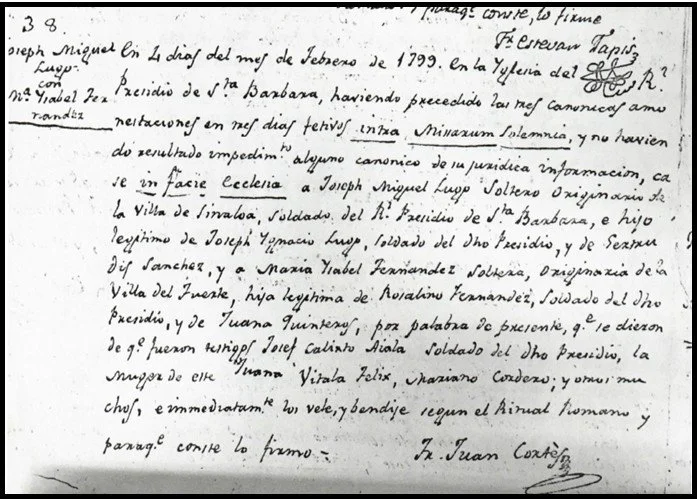 paraqe. conste, lo firme
Fr. Estevan Tapis
38.
Joseph Miguel
Lugo
con
Ma. Ysabel Fer
nandez
En 4 dias del mes de Febrero de 1799. en la Yglesia del Rl.
Presidio de Sta. Barbara, haviendo precedido las tres canonicas amo
nestaciones en tres dias fetivos intra Missarum Solemnia, y no havien
do resultado impedimto. alguno canonico de su juridica informacion, ca
se in facie Ecclesiæ a Joseph Miguel Lugo Soltero Originario de
la Villa de Sinaloa, Soldado del Rl. Presidio de Sta. Barbara, e hijo
legitimo de Joseph Ygnacio Lugo, Soldado del dho Presidio, y de Gertru
dis Sanchez, y a Maria Ysabel Fernandez Soltera, Originaria de la
Villa del Fuerte, hija legitima de Rosalino Fernandez, Soldado del dho
Presidio, y de Juana Quinteros, por palabra de presente, qe. se dieron
de qe. fueron testigos Josef Calixto Aiala Soldado del dho Presidio, la
Muger de este Juana Vitala Felix, Mariano Cordero; y otros mu
chos, e immediatamte. los vele, y bendije segun el Ritual Romano y
paraqe. conste lo firmo =
Fr. Juan Cortès